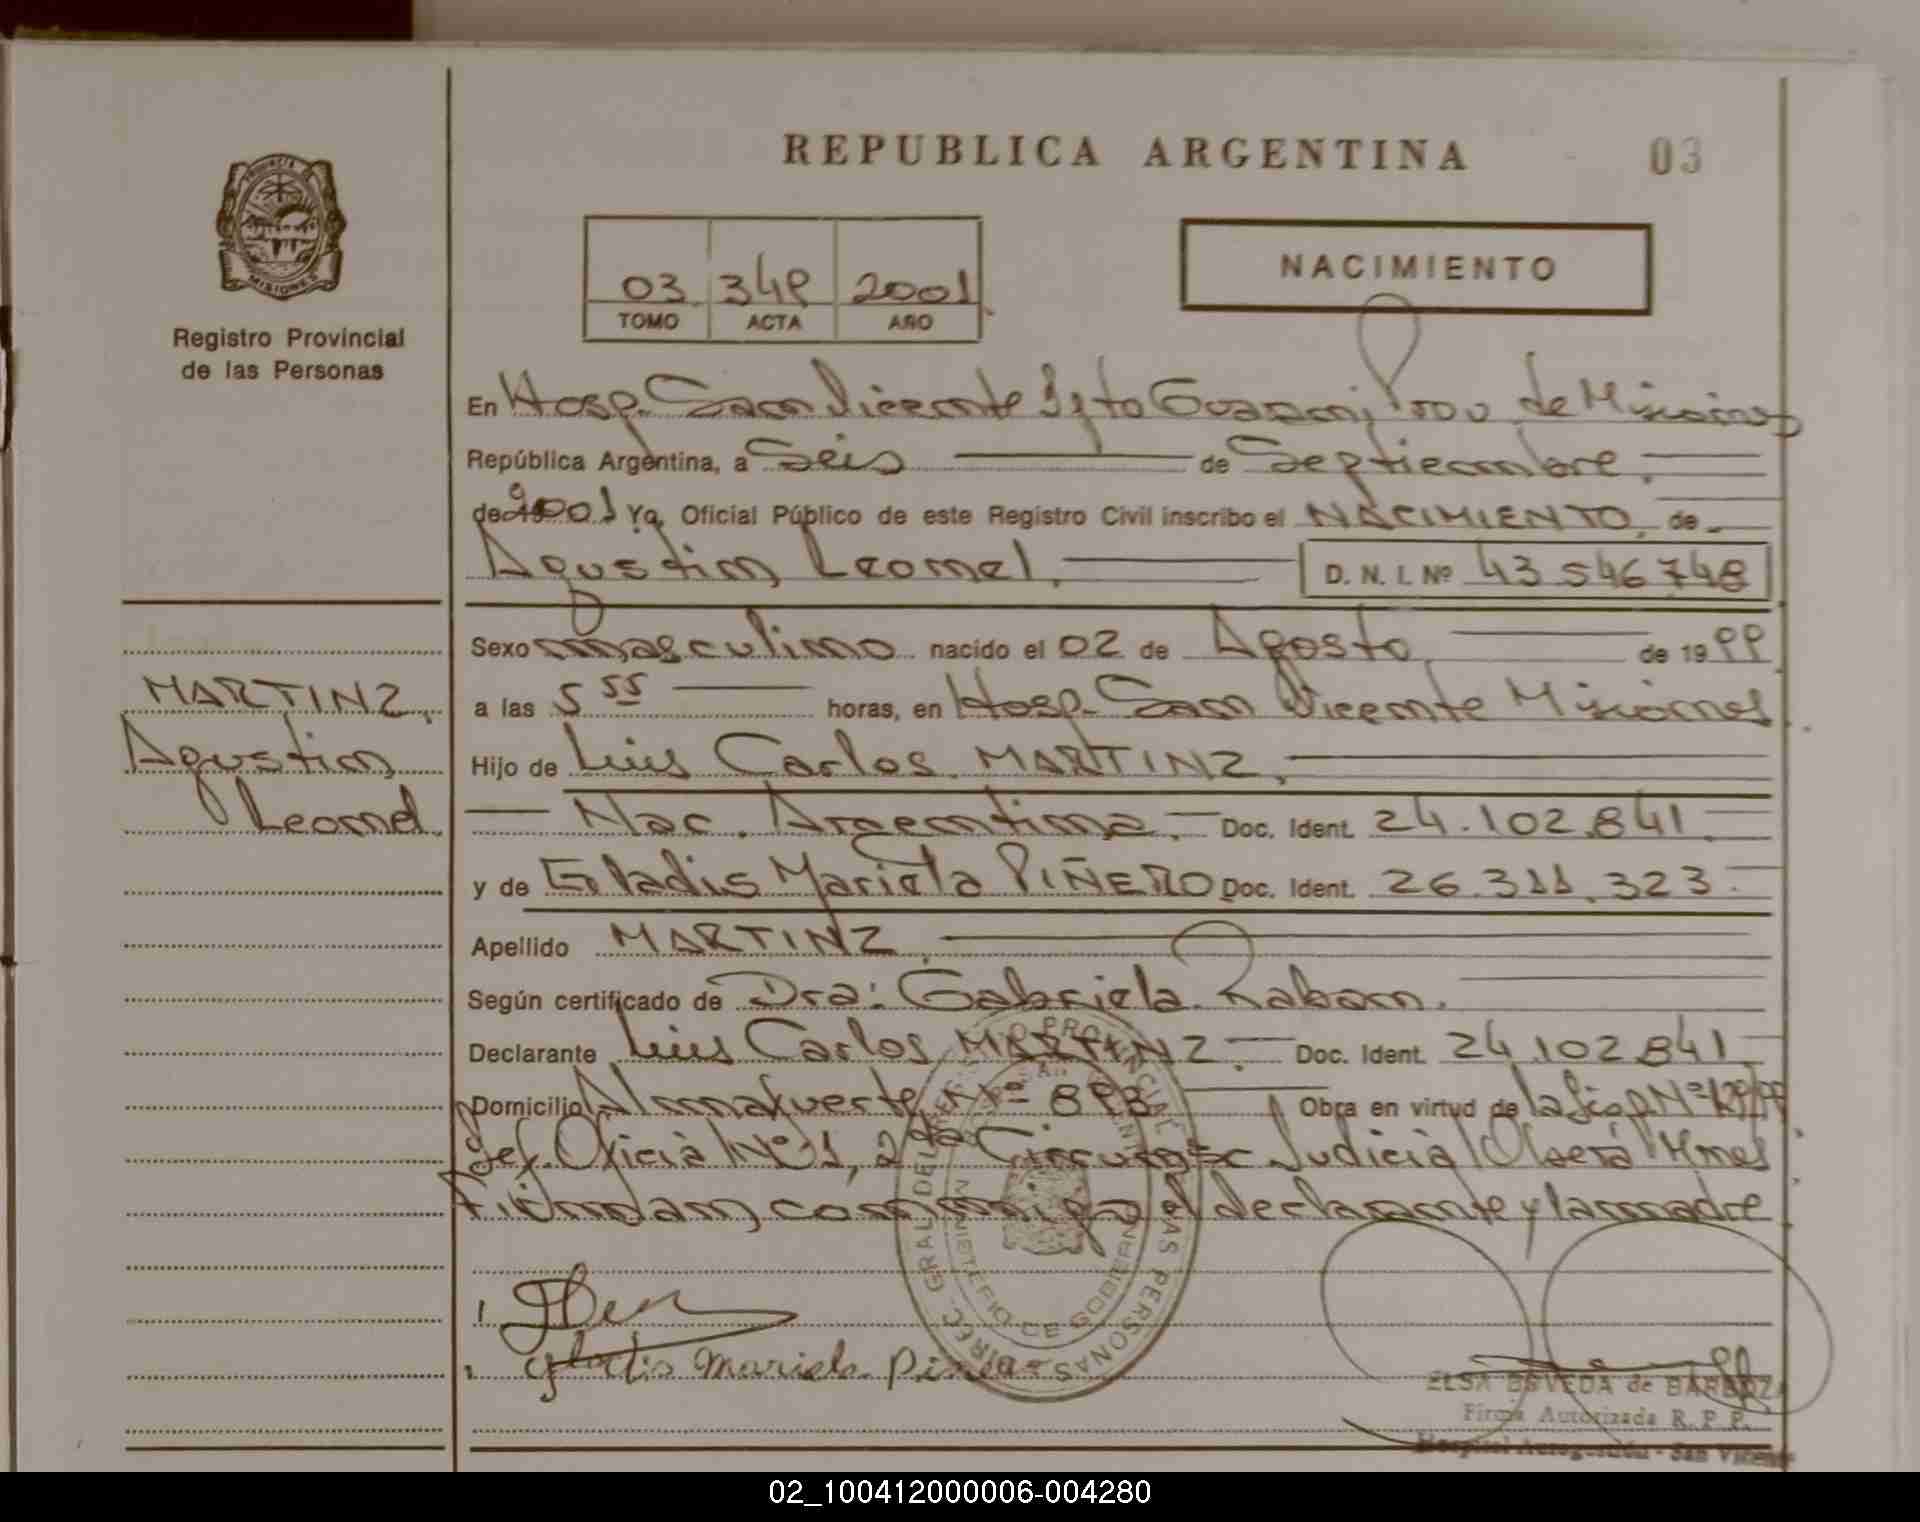 REPUBLICA ARGENTINA 03
NACIMIENTO
PROVINCIA
MISIONES
Registro Provincial
de las Personas
03 349 2001
TOMO ACTA AÑO
En Hosp. San Vicente Dpto Guarani, Prov. de Misiones
República Argentina, a Seis de Septiembre.
de 2001 Yo, Oficial Público de este Registro Civil inscribo el NACIMIENTO de
Agustin Leonel. D. N. I. Nº 43 546 748
Sexo masculino nacido el 02 de Agosto de 1999
a las 5 55 horas, en Hosp. San Vicente Misiones
Hijo de Luis Carlos MARTINZ,
Nac. Argentina. Doc. Ident. 24.102.841
y de Gladis Mariela PIÑERO Doc. Ident. 26.311.323
Apellido MARTINZ
Según certificado de Dra: Gabriela Raban.
Declarante Luis Carlos MARTINZ. Doc. Ident. 24.102.841
Domicilio Almafuerte Nº 898 Obra en virtud de la Disp Nº
Def. Oficial Nº 1, 2da Circunsc Judicial Oberá Mnes
Firmdam conmigo el declarante y la madre
MARTINZ,
Agustin
Leonel.
Gladis Mariela
DIREC. GRAL DEL REG. PROVINCIAL DE LAS PERSONAS
MINISTERIO DE GOBIERNO
ELSA BOVEDA de BARBOZA
Firma Autorizada R. P. P.
Hospital Autogestión - San Vicente
02_100412000006-004280